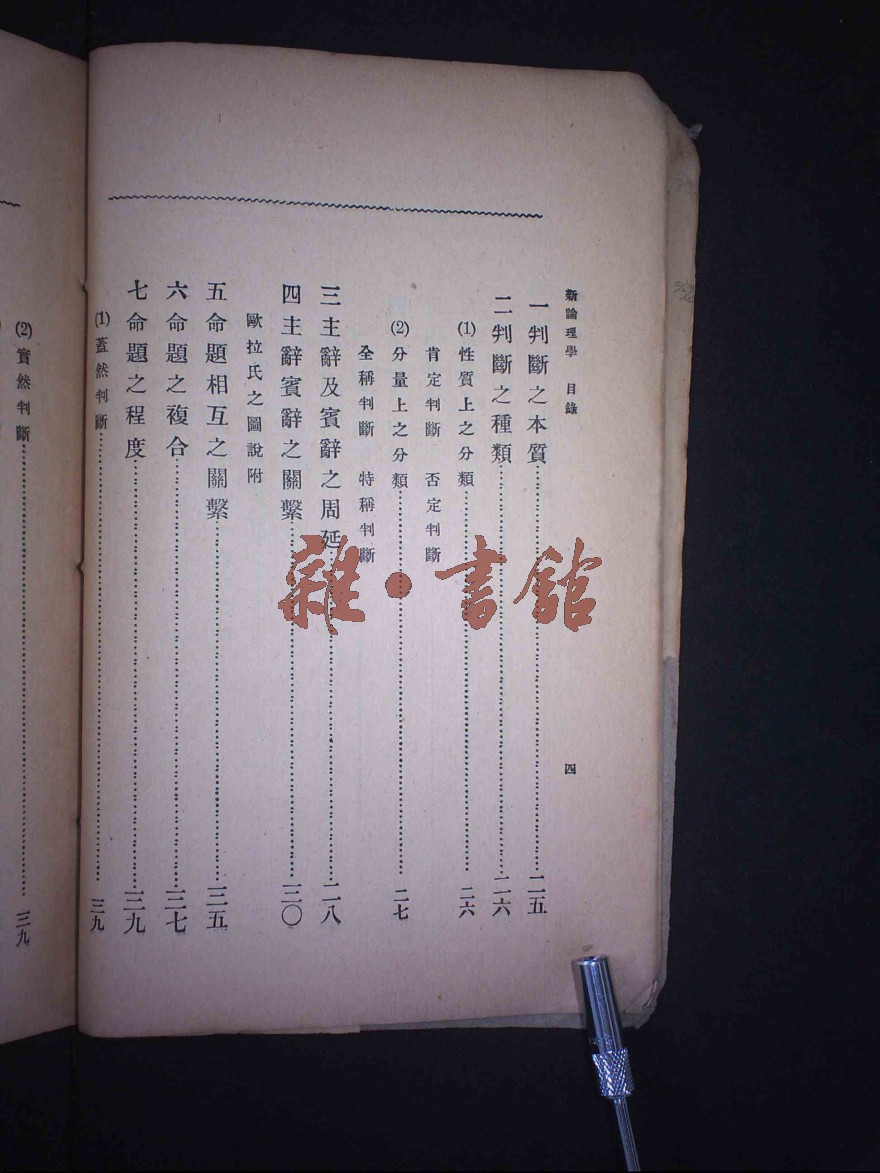 新論理學 目錄 四
一 判斷之本質……二五
二 判斷之種類……二六
(1) 性質上之分類……二六
肯定判斷 否定判斷
(2) 分量上之分類……二七
全稱判斷 特稱判斷
三 主辭及賓辭之周延……二八
四 主辭賓辭之關繫……三〇
歐拉氏之圖說附
五 命題相互之關繫……三五
六 命題之複合……三七
七 命題之程度……三九
(1) 蓋然判斷……三九
(2) 實然判斷……三九
雜·書館